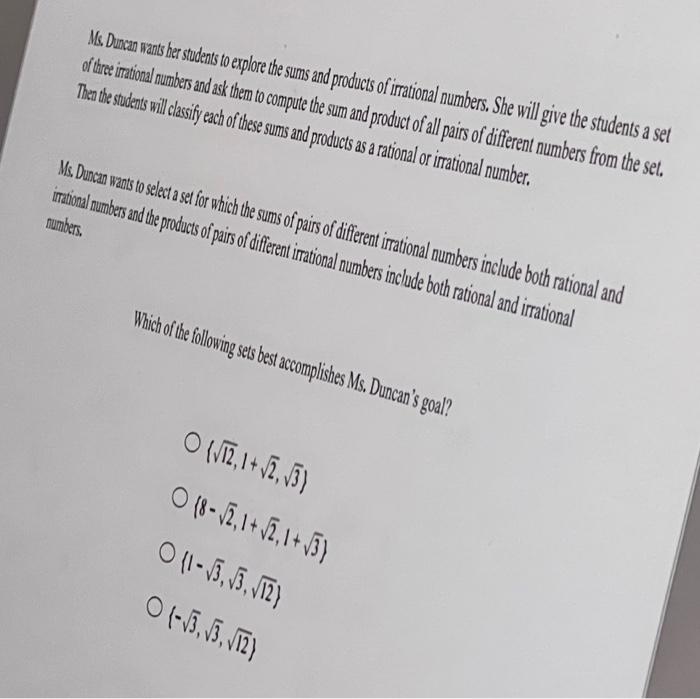 Ms. Duncan wants her students to explore the sums and products of irrational numbers. She will give the students a set
of three irrational numbers and ask them to compute the sum and product of all pairs of different numbers from the set.
Then the students will classify each of these sums and products as a rational or irrational number.
Ms. Duncan wants to select a set for which the sums of pairs of different irrational numbers include both rational and
irrational numbers and the products of pairs of different irrational numbers include both rational and irrational
numbers.
Which of the following sets best accomplishes Ms. Duncan's goal?
{√12, 1 + √2, √3}
{8 - √2, 1 + √2, 1 + √3}
{1 - √3, √3, √12}
{-√3, √3, √12}